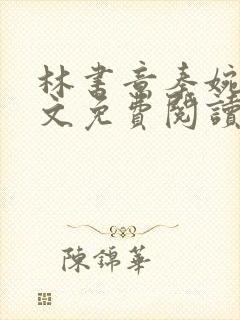 林書音秦婉
文免費閱讀
陳錦華